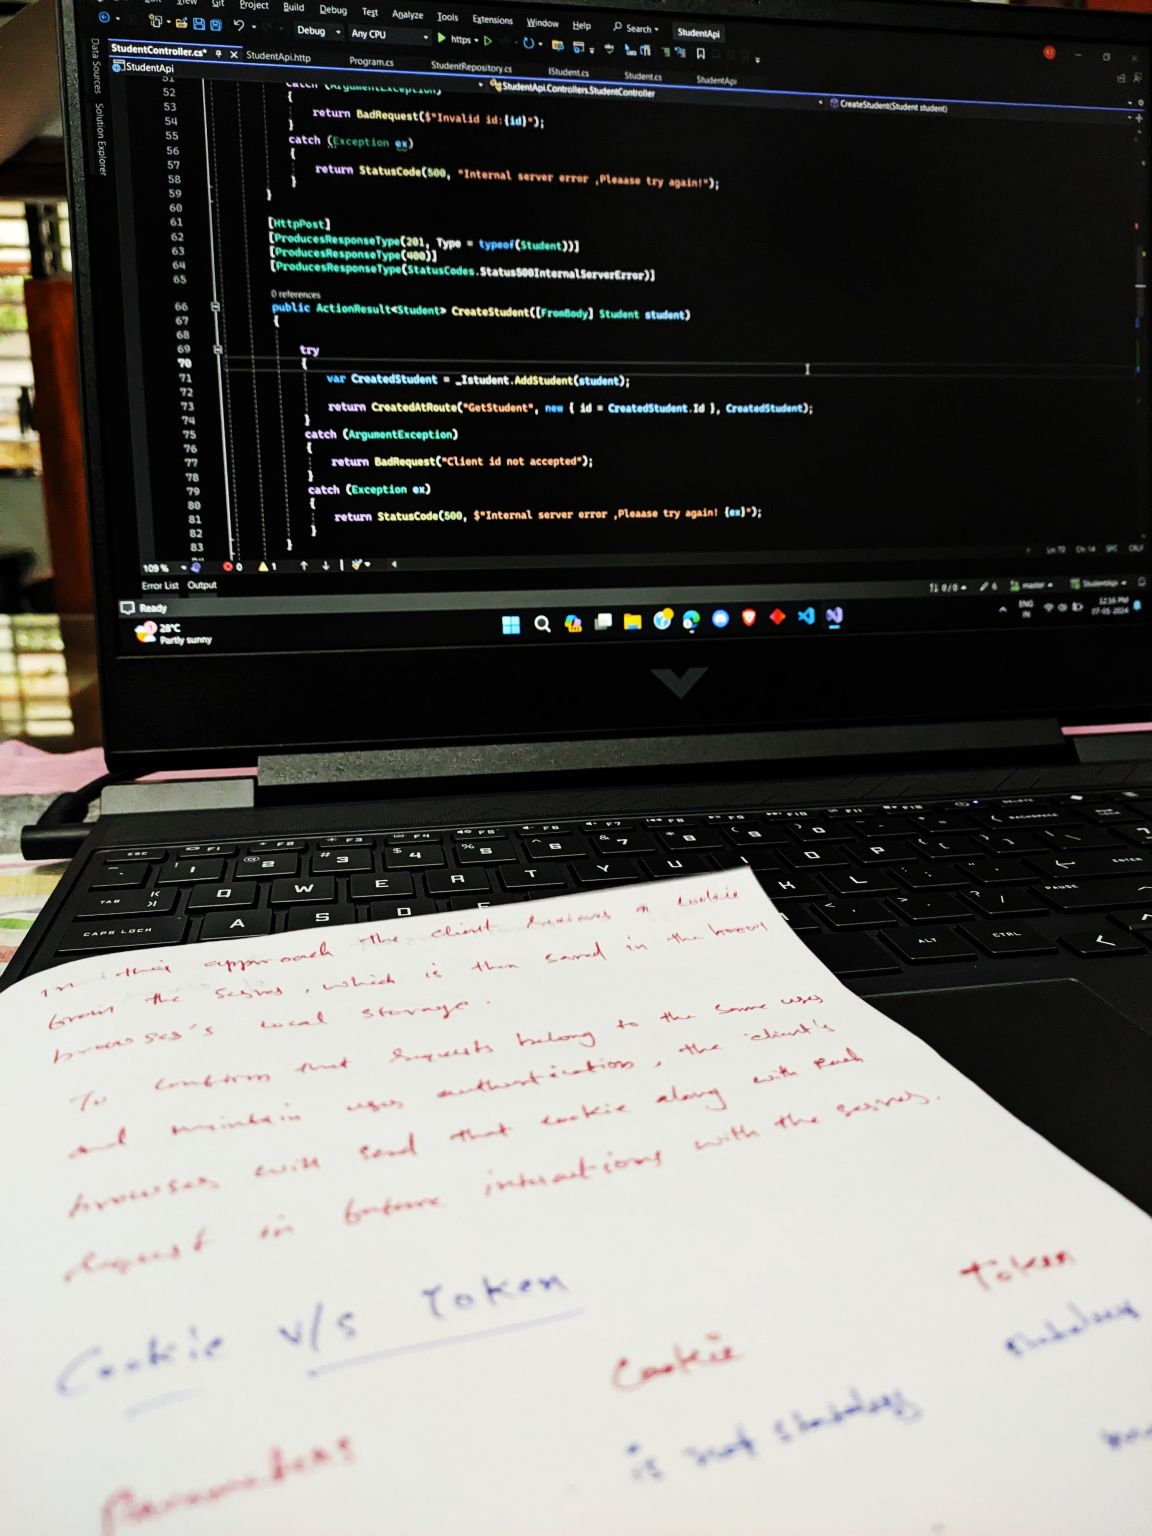 View Git Project Build Debug Test Analyze Tools Extensions Window Help Search StudentApi
Debug Any CPU https
StudentController.cs* StudentApi.http Program.cs StudentRepository.cs IStudent.cs Student.cs StudentApi
StudentApi StudentApi.Controllers.StudentController CreateStudent(Student student)
Data Sources
Solution Explorer
51 catch (ArgumentException)
52 {
53 return BadRequest($"Invalid id:{id}");
54 }
55 catch (Exception ex)
56 {
57 return StatusCode(500, "Internal server error ,Pleaase try again!");
58 }
59 }
60
61 [HttpPost]
62 [ProducesResponseType(201, Type = typeof(Student))]
63 [ProducesResponseType(400)]
64 [ProducesResponseType(StatusCodes.Status500InternalServerError)]
65
0 references
66 public ActionResult<Student> CreateStudent([FromBody] Student student)
67 {
68
69 try
70 {
71 var CreatedStudent = _Istudent.AddStudent(student);
72
73 return CreatedAtRoute("GetStudent", new { id = CreatedStudent.Id }, CreatedStudent);
74 }
75 catch (ArgumentException)
76 {
77 return BadRequest("Client id not accepted");
78 }
79 catch (Exception ex)
80 {
81 return StatusCode(500, $"Internal server error ,Pleaase try again! {ex}");
82 }
83 }
109 % 0 1
Error List Output
Ready 0/0 6 master StudentApi
28°C
Partly sunny
ENG
IN
12:16 PM
07-05-2024
ESC F1 F2 F3 F4 F5 F6 F7 F8 F9 F10 F11 F12 DELETE
! 1 @ 2 # 3 $ 4 % 5 ^ 6 & 7 * 8 ( 9 ) 0 BACKSPACE
TAB Q W E R T Y U I O P ENTER PAUSE
CAPS LOCK A S D K L
ALT CTRL
In this approach the client receives a cookie
from the server, which is then saved in the
browser's local storage.
To confirm that requests belong to the same user
and maintain user authentication, the client's
browser will send that cookie along with each
request in future interactions with the server.
Cookie v/s Token
Cookie Token
Parameters is not stateless stateless